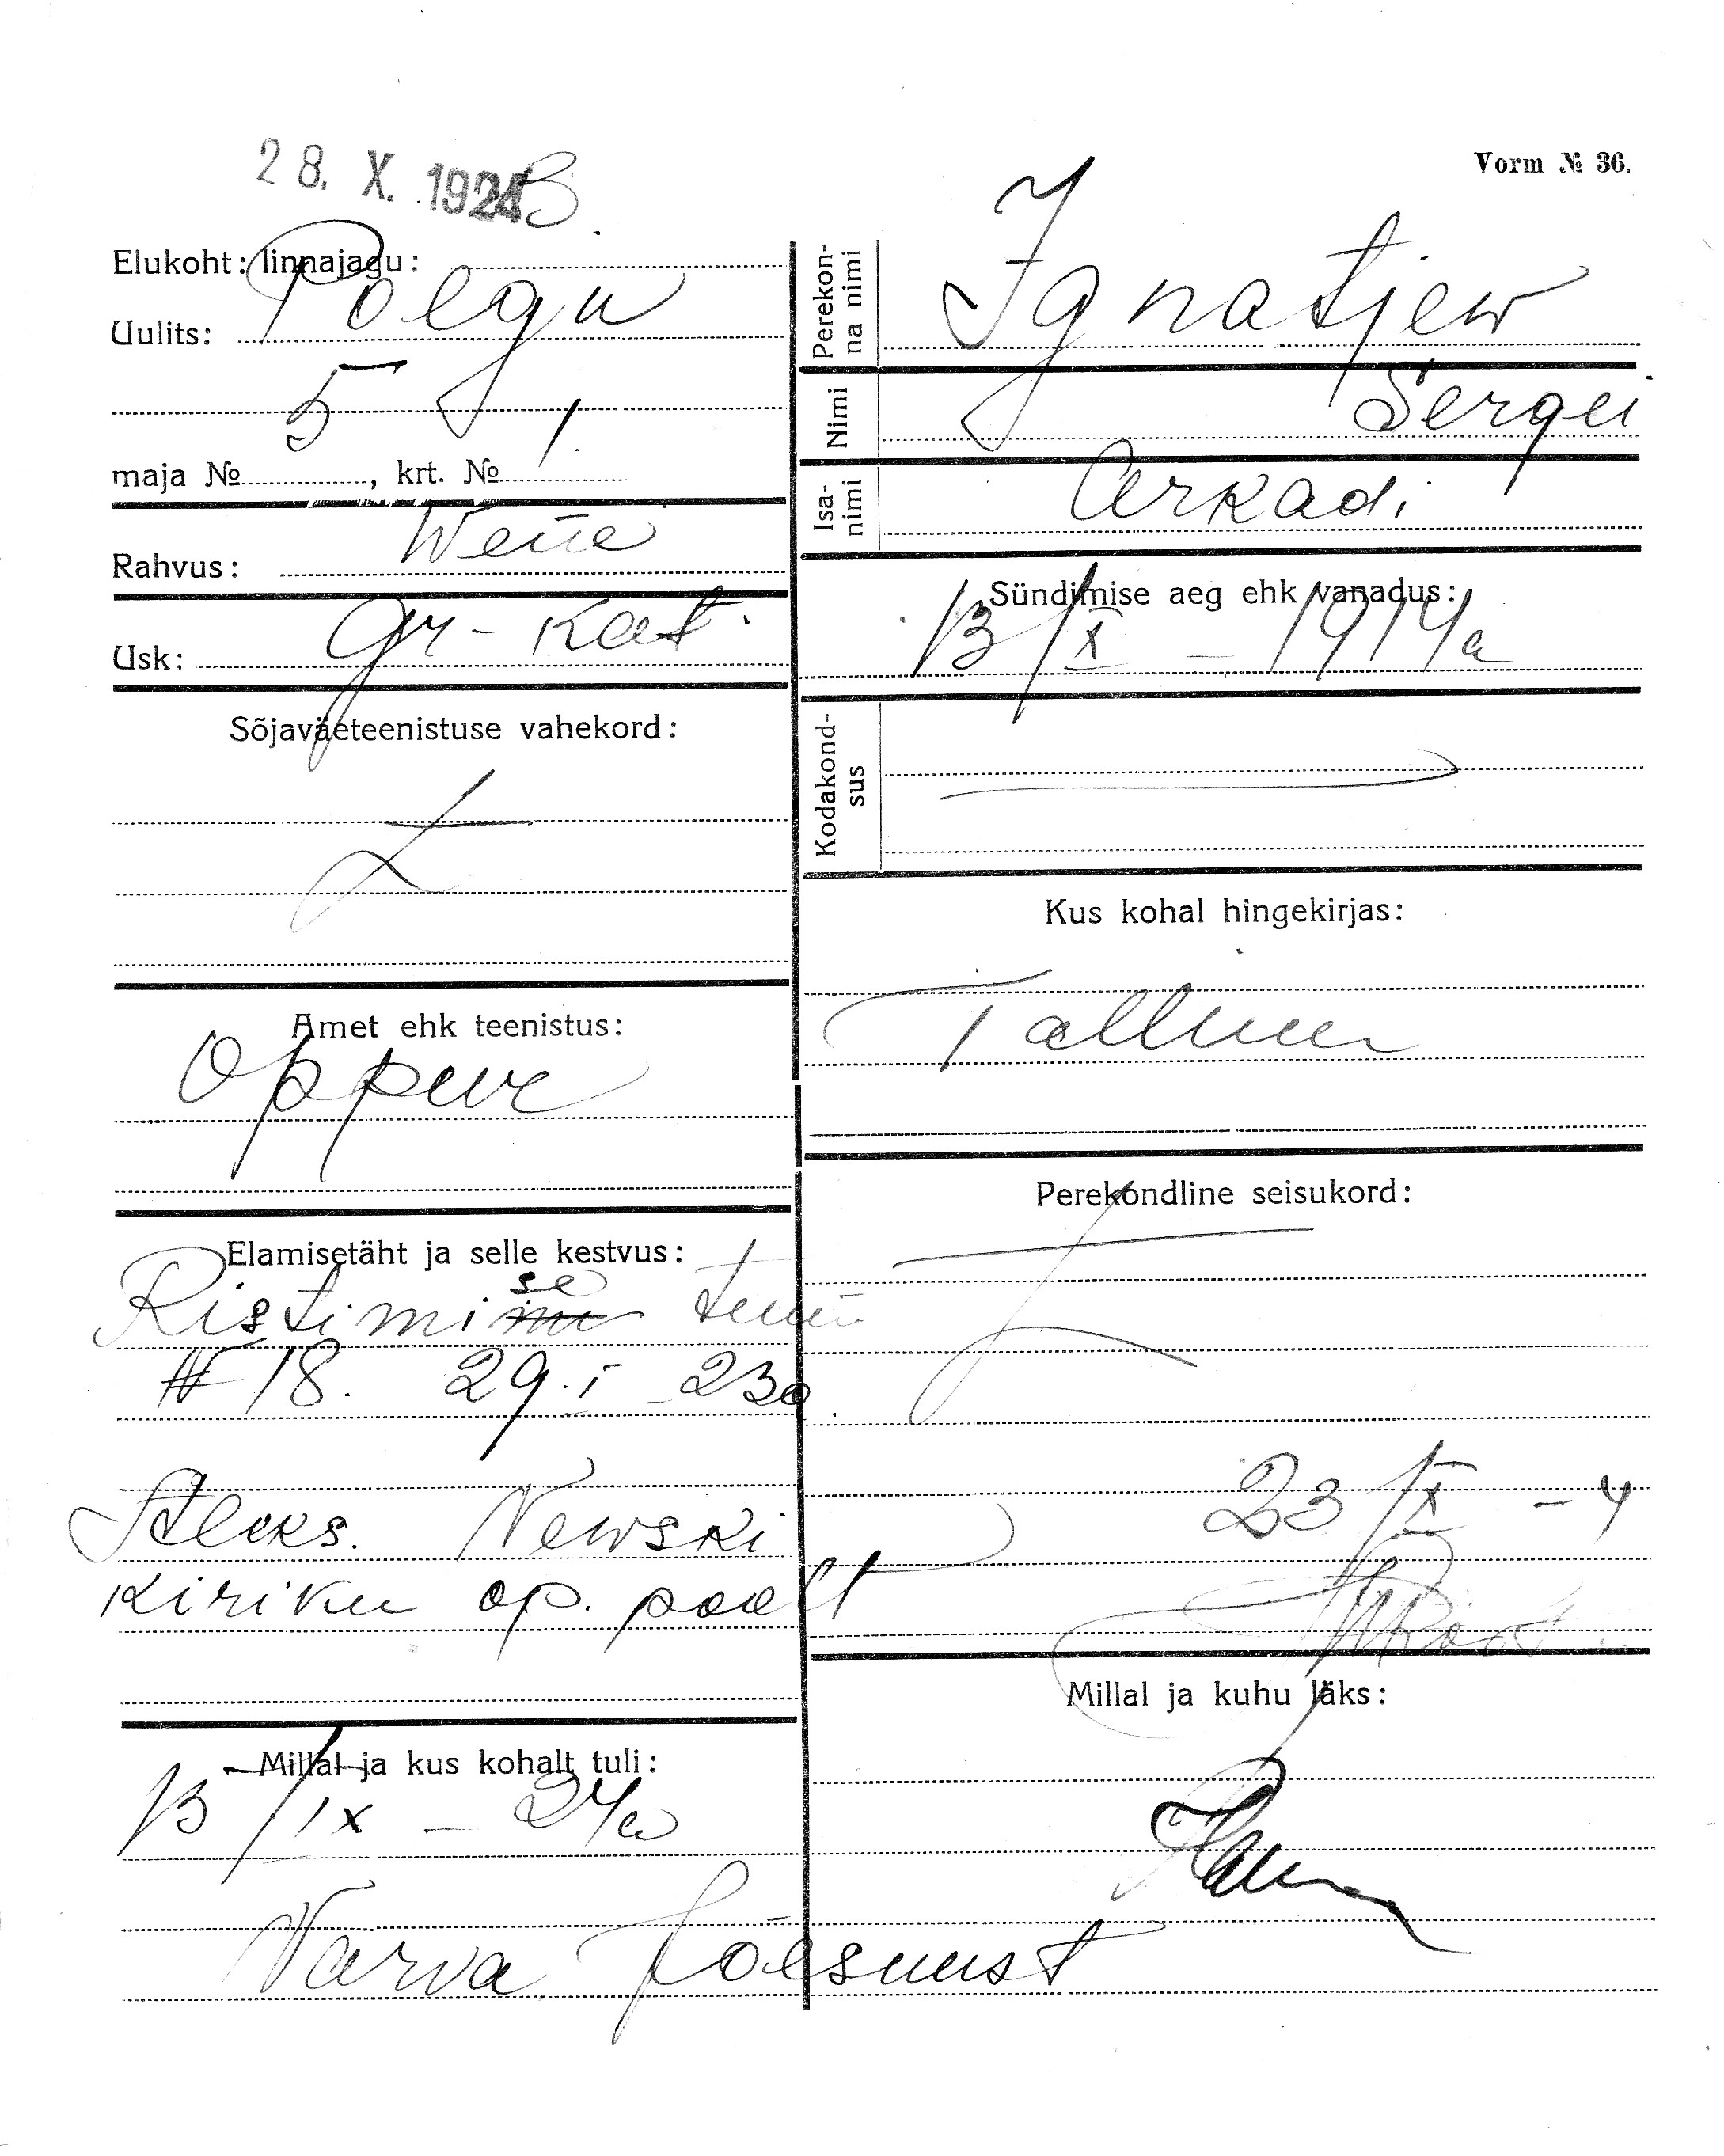 28. X. 1924 B.
Vorm № 36.
Elukoht: linnajagu:
Uulits: Poegu
5 1.
maja №, krt. №
Rahvus: Wene
Usk: gr-kat.
Sõjaväeteenistuse vahekord:
Amet ehk teenistus:
Oppur
Elamisetäht ja selle kestvus:
Ristimise tunn
№ 18. 29.I-23a.
Aleks. Newski
kiriku op. poolt
Millal ja kus kohalt tuli:
13/IX - 24a
Narva Jõesuust
Perekonna nimi Ignatjew
Nimi Sergei
Isanimi Arkadi
Sündimise aeg ehk vanadus:
13/X - 1914a
Kodakondsus
Kus kohal hingekirjas:
Tallinn
Perekondline seisukord:
23/X - 4
Millal ja kuhu läks: